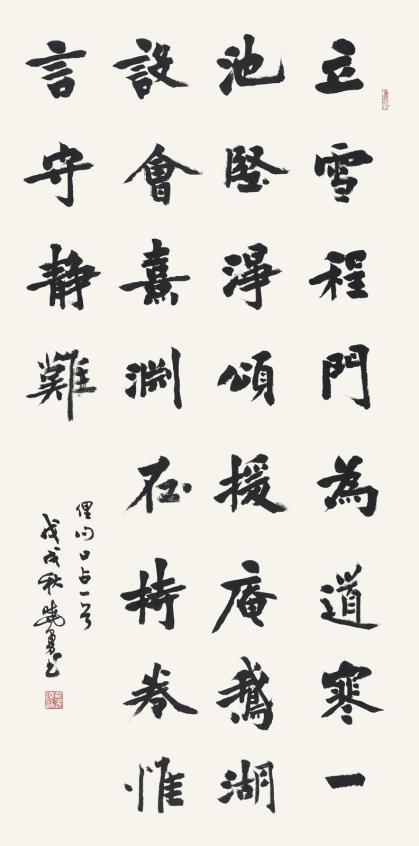 立雪程門為道寒一
池堅淨頌援庵鵝湖
設會熹淵在持卷惟
言守静難
俚句口占一首
戊戌秋曉勇書